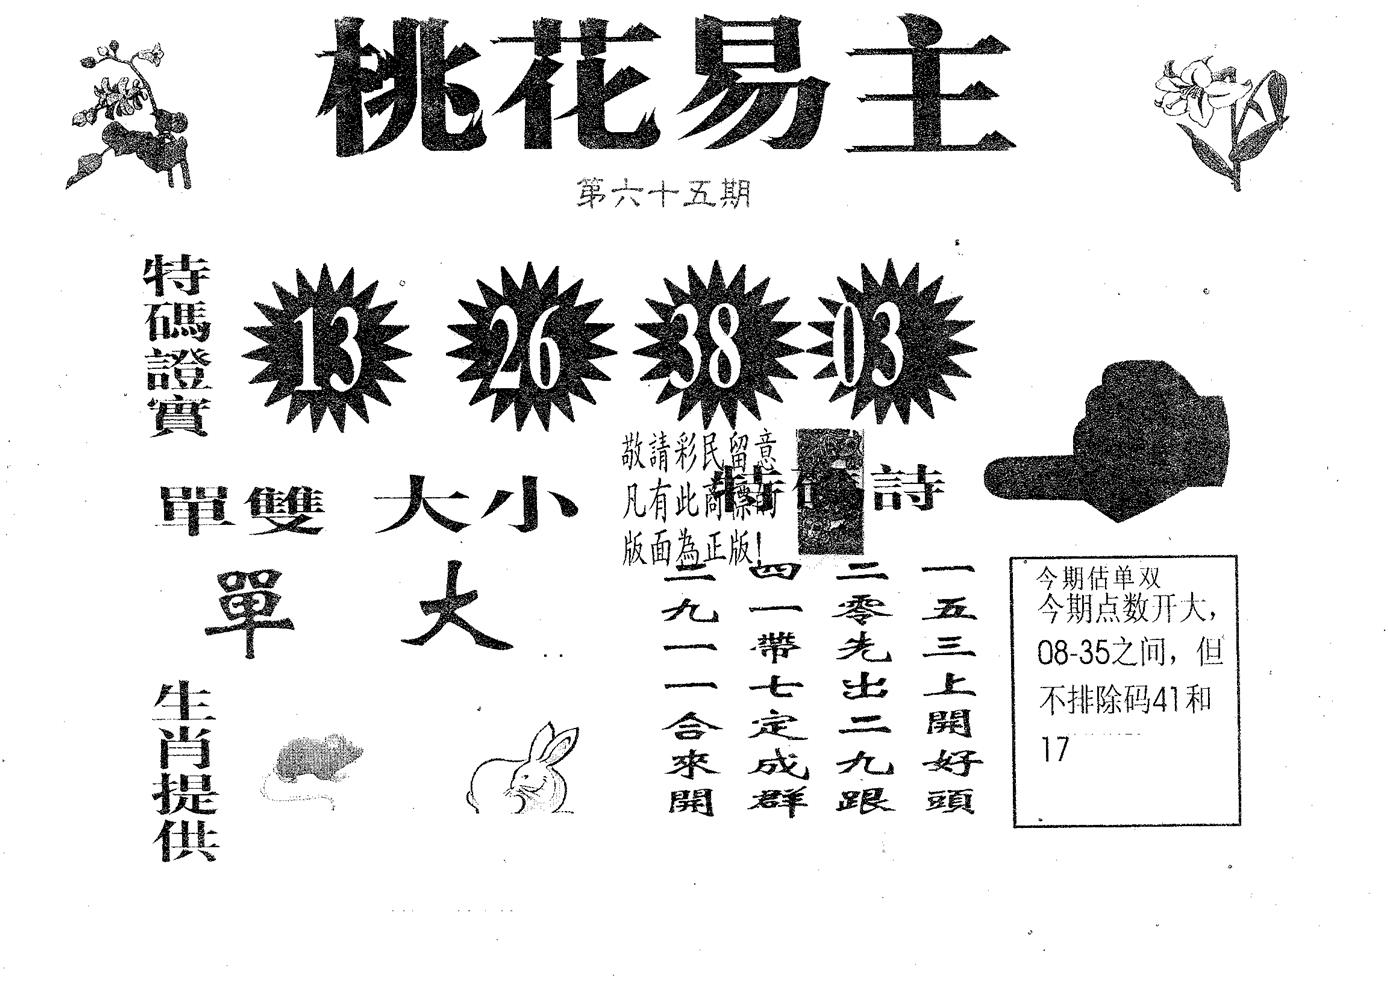 桃花易主
第六十五期
特碼證實
13 26 38 03
敬請彩民留意
凡有此商標的
版面為正版!
單雙 大小
單 大
特碼詩
一五三上開好頭
二零先出二九跟
四一帶七定成群
二九一一合來開
今期估单双
今期点数开大，
08-35之间，但
不排除码41和
17
生肖提供